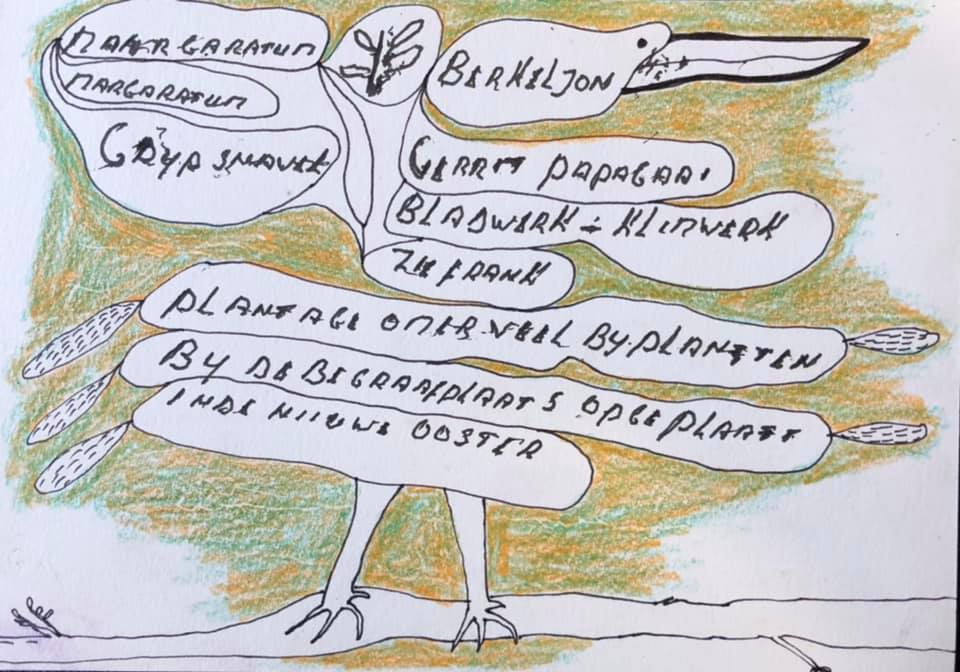 MARGARATUM
BERKELJON
GRYPSNAVEL
GERRIT PAPAGAAI
BLADWERK + KLIMWERK
ZIE FRANK
PLANTAGE OMER VEEL BY PLANTTEN
BY DE BEGRAAFPLAATS OPGE PLAATT
IN DE NIEUWE OOSTER